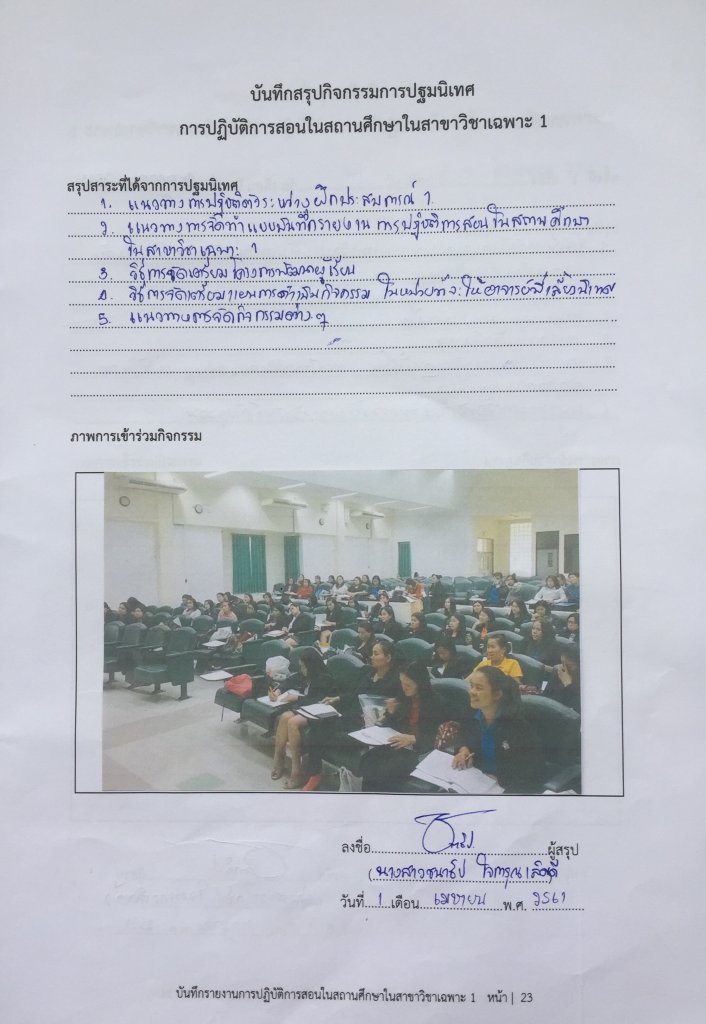 บันทึกสรุปกิจกรรมการปฐมนิเทศ
การปฏิบัติการสอนในสถานศึกษาในสาขาวิชาเฉพาะ 1
สรุปสาระที่ได้จากการปฐมนิเทศ
1. แนวทางการปฏิบัติตัวระหว่างฝึกประสบการณ์ 1
2. แนวทางการจัดทำแบบบันทึกรายงาน การปฏิบัติการสอนในสถานศึกษา
ในสาขาวิชาเฉพาะ 1
3. วิธีการจัดเตรียมโครงการพัฒนาผู้เรียน
4. วิธีการจัดเตรียมแผนการดำเนินกิจกรรม ในหน่วยที่จะให้อาจารย์พี่เลี้ยงนิเทศ
5. แนวทางการจัดกิจกรรมต่างๆ
ภาพการเข้าร่วมกิจกรรม
ลงชื่อ ผู้สรุป
(นางสาวชนาธิป
วันที่ 1 เดือน เมษายน พ.ศ. 2561
บันทึกรายงานการปฏิบัติการสอนในสถานศึกษาในสาขาวิชาเฉพาะ 1 หน้า | 23